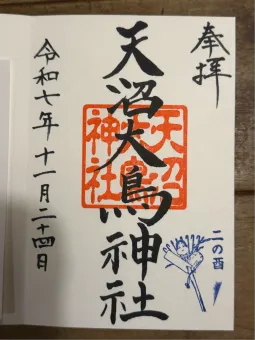 奉拝
天沼大鳥神社
天沼大鳥神社
二の酉
令和七年十一月二十四日